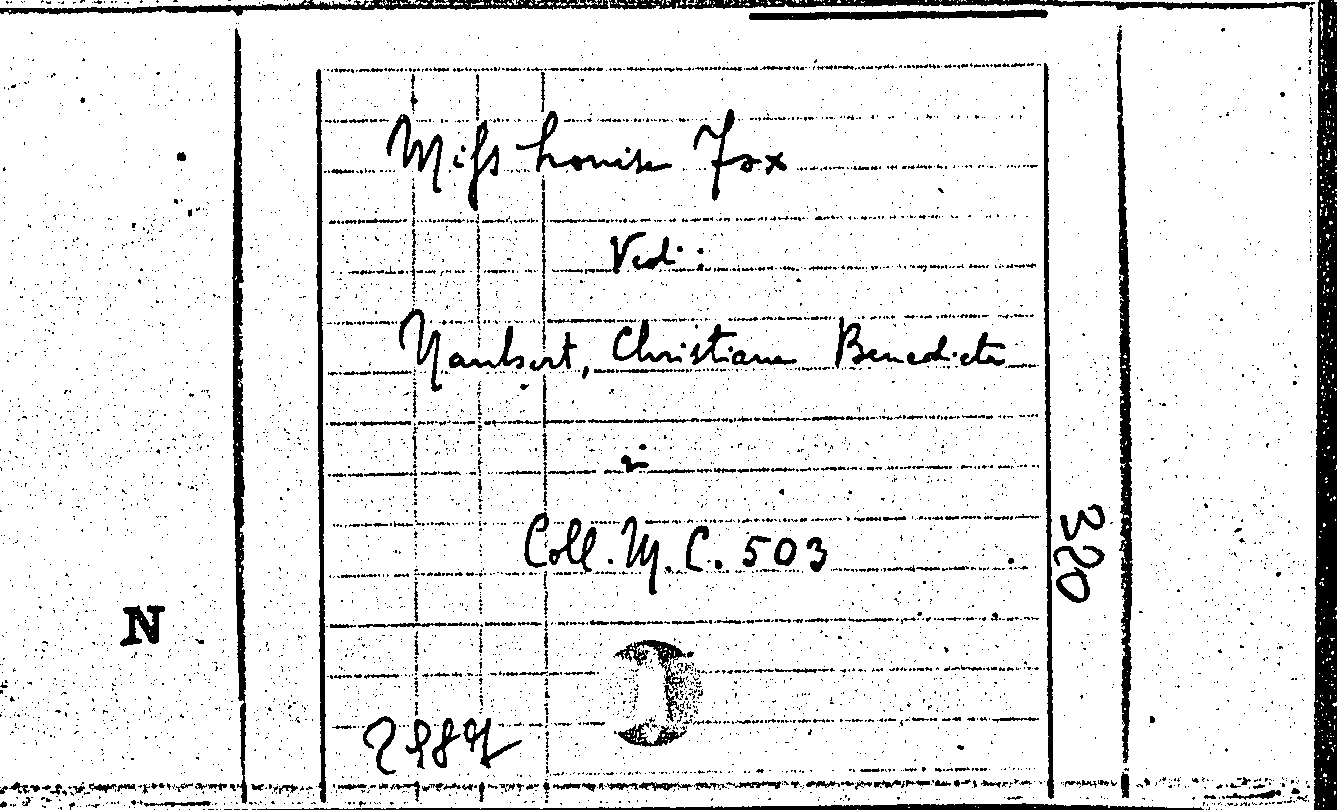 Miss Louise Fox
Vedi:
Naubert, Christiane Benedicte
in
Coll. M. C. 503
320
N